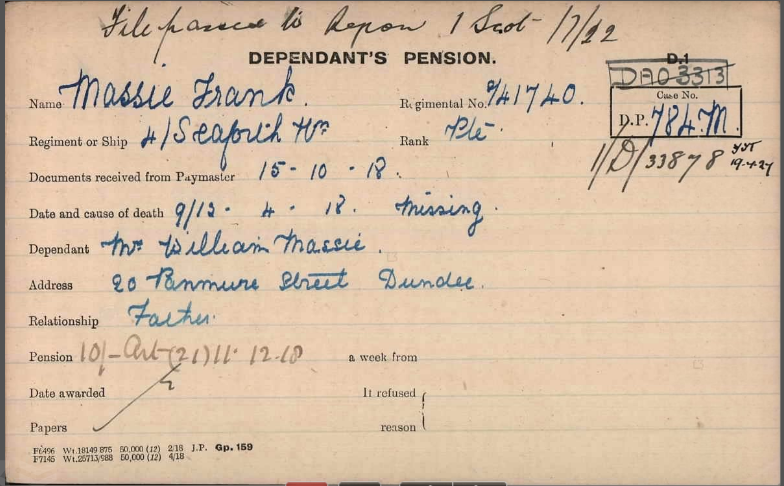 File passed to Region 1 Scot 1/7/22
DEPENDANT'S PENSION.
D.1
DAO 3313
Name Massie Frank.
Regimental No. 41740.
Case No.
D.P. 784.M.
Regiment or Ship 4/Seaforth Hrs
Rank Pte
1/D/33878
19.4.27
Documents received from Paymaster 15-10-18.
Date and cause of death 9/13-4-18. Missing.
Dependant Mr William Massie.
Address 20 Panmure Street Dundee.
Relationship Father.
Pension 10/- Art (21) 11.12.18 a week from
Date awarded
If refused
Papers
reason
F6496 Wt.18149 875 50,000 (12) 2/18 J.P. Gp. 159
F7145 Wt.25713/988 50,000 (12) 4/18